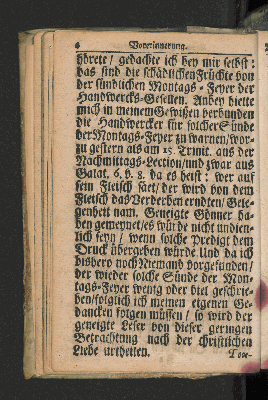 6 Vorerinnerung.
hörete / gedachte ich bey mir selbst:
das sind die schädlichen Früchte von
der sündlichen Montags-Feyer der
Handwercks-Gesellen. Anbey hielte
mich in meinem Gewissen verbunden
die Handwercker für solcher Sünde
der Montags-Feyer zu warnen/wor-
zu gestern als am 15. Trinit. aus der
Nachmittags-Lection/und zwar aus
Galat. 6. v. 8. da es heist: wer auf
sein Fleisch säet/der wird von dem
Fleisch das Verderben erndten/Gele-
genheit nam. Geneigte Gönner ha-
ben gemeynet/es würde nicht undien-
lich seyn / wenn solche Predigt dem
Druck übergeben würde Und da ich
bishero noch Niemand vorgefunden/
der wieder solche Sünde der Mon-
tags-Feyer wenig oder viel geschrie-
ben/folglich ich meinen eigenen Ge-
dancken folgen müssen / so wird der
geneigte Leser von dieser geringen
Betrachtung nach der christlichen
Liebe urtheilen.